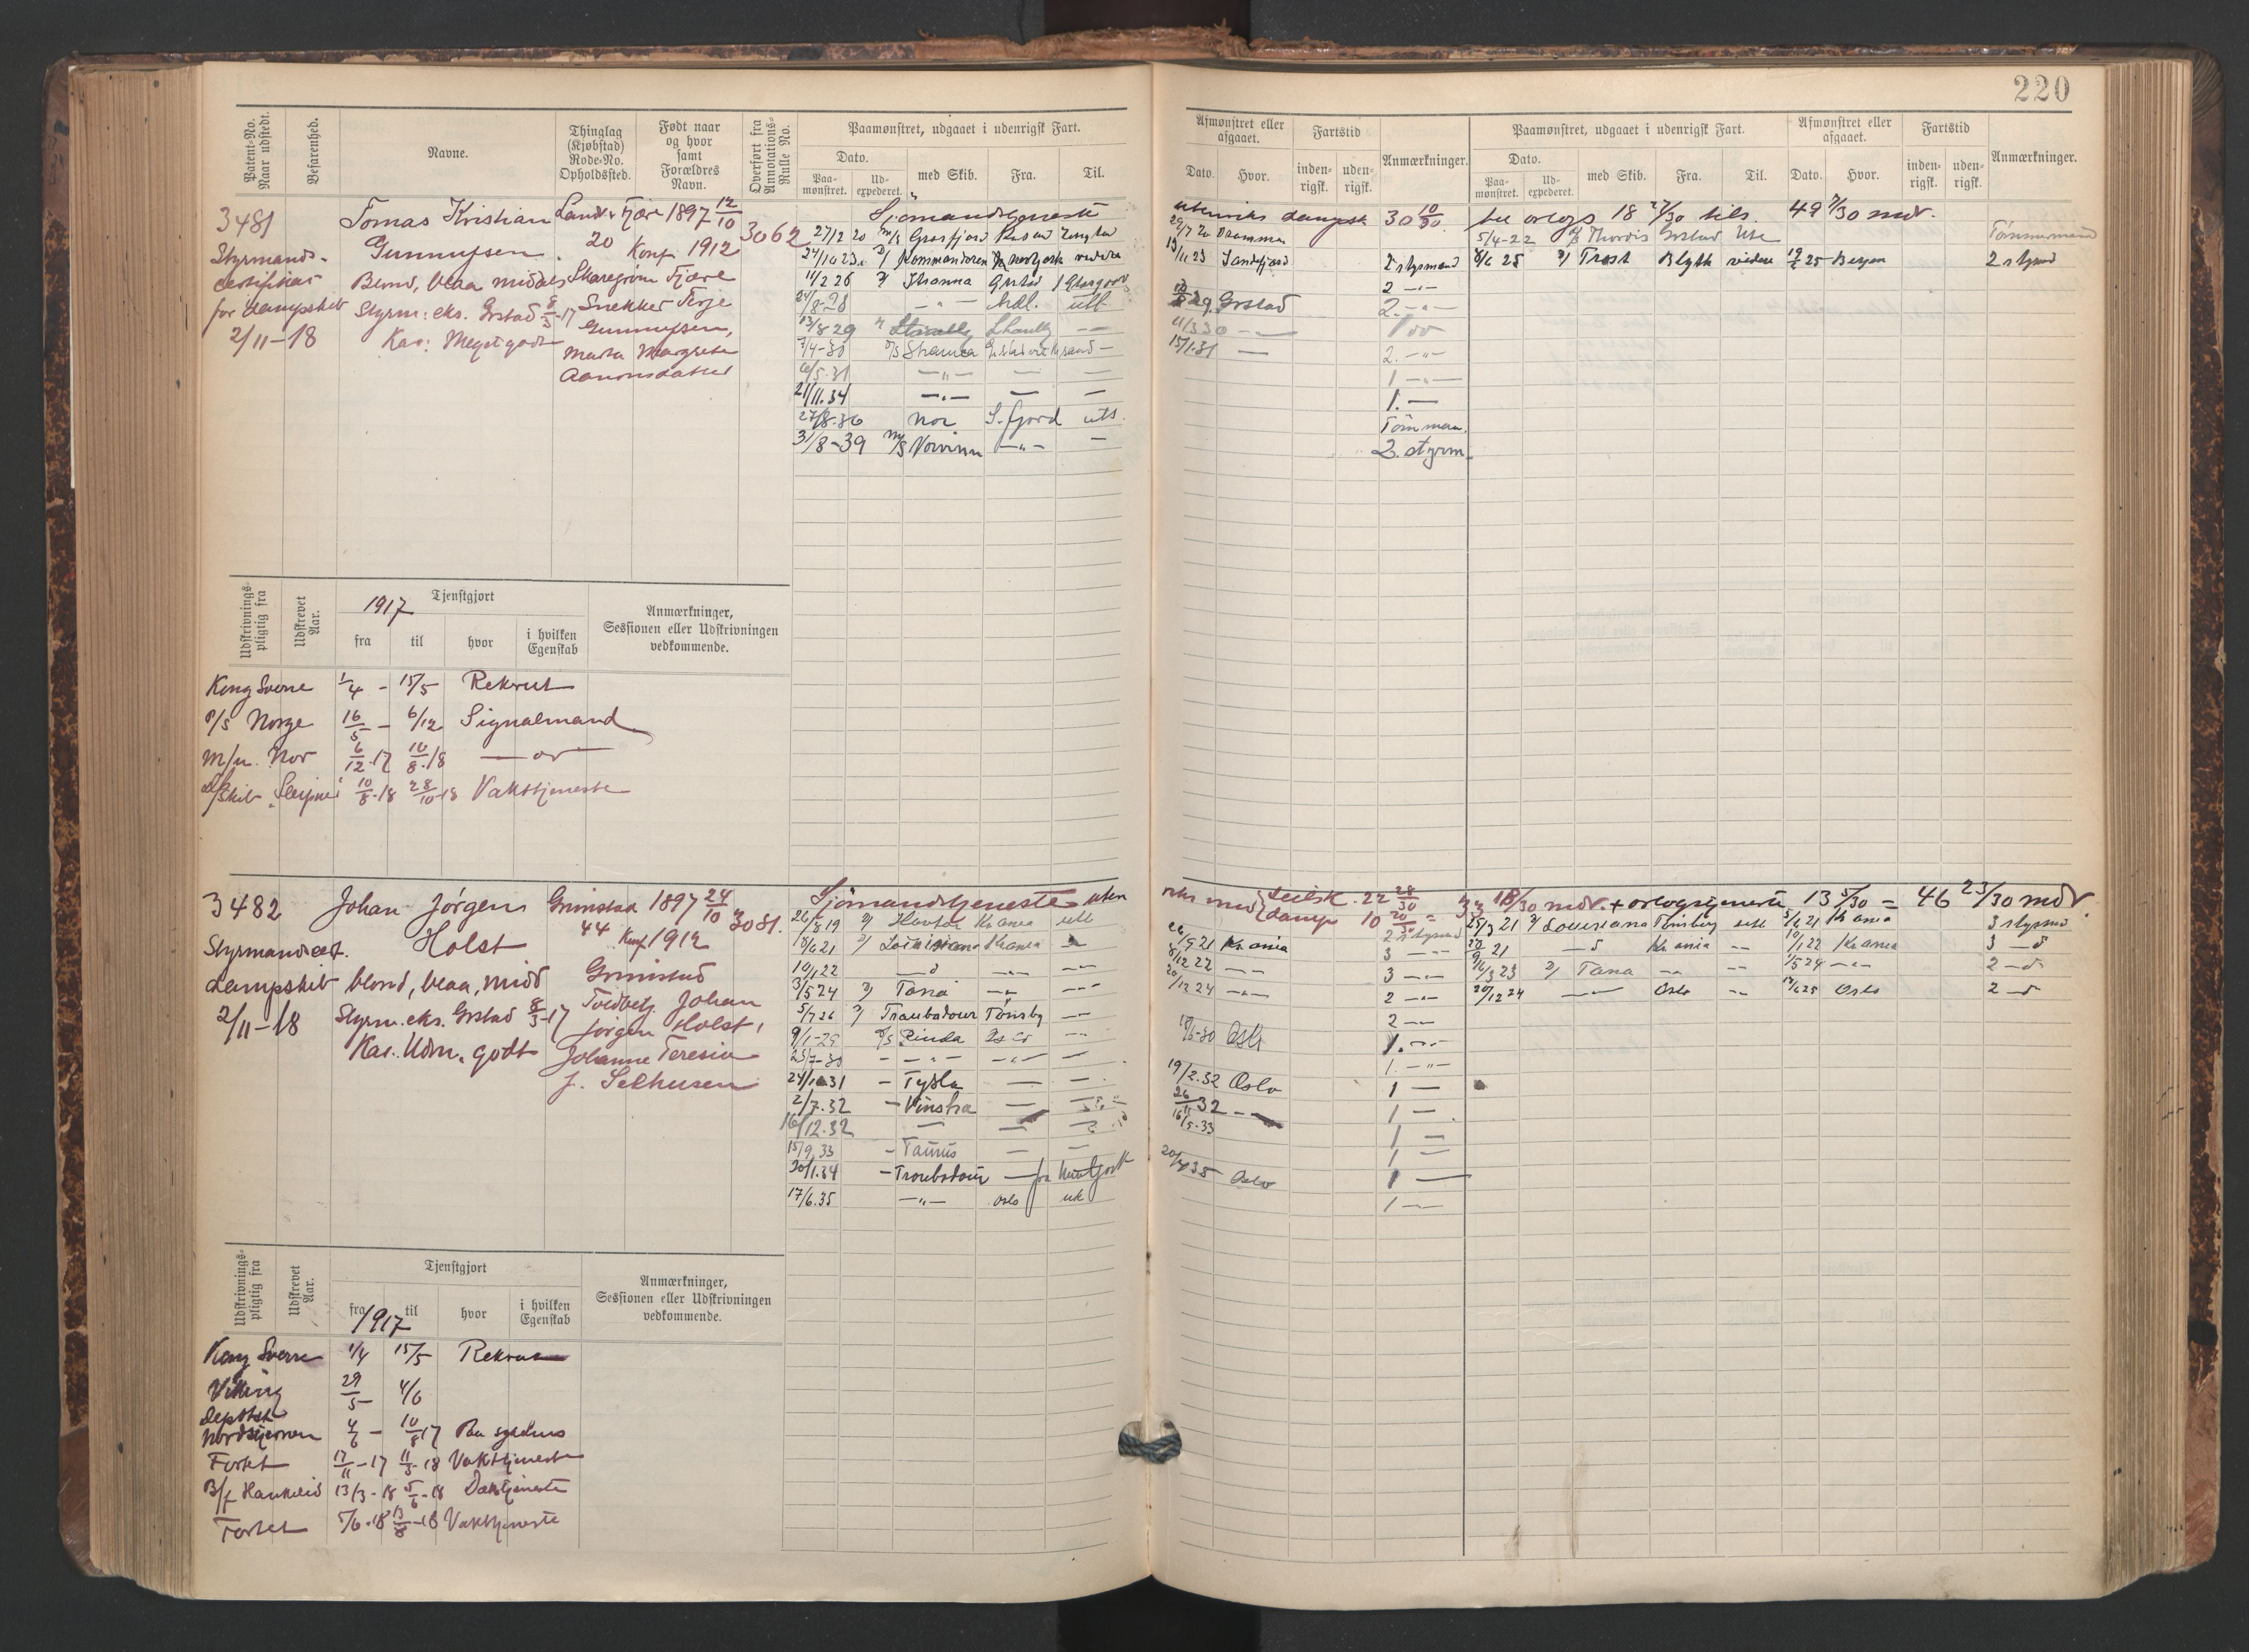 220
Patent-No. Naar udstedt.
Befarenhed.
Navne.
Thinglag (Kjøbstad) Rode-No. Opholdssted.
Født naar og hvor samt Forældres Navn.
Overført fra Annotations-Rulle No.
Paamønstret, udgaaet i udenrigsk Fart.
Dato.
Paa-mønstret.
Ud-expederet.
med Skib.
Fra.
Til.
Afmønstret eller afgaaet.
Dato.
Hvor.
Fartstid
inden-rigsk.
uden-rigsk.
Anmærkninger.
Paamønstret, udgaaet i udenrigsk Fart.
Dato.
Paa-mønstret.
Ud-expederet.
med Skib.
Fra.
Til.
Afmønstret eller afgaaet.
Dato.
Hvor.
Fartstid
inden-rigsk.
uden-rigsk.
Anmærkninger.
3481
Styrmands-
certifikat
for dampskib
2/11-18
Tomas Kristian
Gunnufsen
Blond, blaa, middels
Styrm: eks. Grstad 8/3-17
Kar: Meget godt
Landv. Fjære 1897 12/10
20 Konf. 1912
Fjære
Snekker Terje
Gunnufsen,
Marta Margrete
Aanonsdatter
3062
Sjømandstjeneste
27/2 20 M/S
24/10 23 Kommandøren videre
11/2 26 Grstad Glasgow
24/8-28 — " — utl.
13/8 29
7/4-30 D/S
6/5.31 — " — — —
21/11.34 — " — — —
27/8-36 Nor S.fjord utl.
31/8-39 M/S — " — —
utenriks dampsk 30 10/30.
29/7 20 Drammen
13/11 23 Sandefjord 2 styrmand
2 — " —
29 Grstad 2. — " —
11/3 30 — " —
15/1.31 — 2. — " —
1 — " —
1. —
Tømmerm.
2. styrm.
orlogs 18 27/30 tils. 49 7/30 mdr.
5/4-22 Thordis Grstad Tømmermand
8/6 25 Trost Blyth videre 25 Bergen 2 styrmd
Udskrivnings-pligtig fra
Udskrevet Aar.
Tjenstgjort
1917
fra
til
hvor
i hvilken Egenskab
Anmærkninger, Sessionen eller Udskrivningen vedkommende.
Kong Sverre 1/4 - 15/5 Rekrut
P/S Norge 16/5 - 6/12 Signalmand
M/u. Nor 6/12-17 10/8-18
Sleipner 10/8-18 28/10-18 Vakttjeneste
3482
Styrmandscert.
dampskib
2/11-18
Johan Jørgen
Holst
blond, blaa, midd
Styrm. eks. Grstad 8/3-17
Kar. Udm. godt
Grimstad 1897 24/10
44 Konf 1912
Grimstad
Johan
Jørgen Holst,
Johanne Teresia
f. Selhusen
3081.
Sjømandstjeneste uten
26/8 19 Kr.ania utl
18/6 21 Louisiana Kr.ania —
10/1 22 — " — — " — — " —
3/5 24 Tana — " — — " —
5/7 26 Troubadour Tønsbg — " —
9/1-29 D/S Rinda Oslo — " —
23/7-30 — " — — " — —
24/10 31 — Tysla — —
2/7.32 — Vinstra — —
16/12.32 — — —
15/9.33 — Taurus — —
20/1.34 — Troubadour — fra Newyork
17/6.35 — " — Oslo utl
riks med { seilsk. 22 28/30
damp 10 20/30 = 33 18/30 mdr. + orlogstjeneste 13 5/30 = 46 23/30 mdr.
2 styrmd
26/9 21 Kr.ania 3 — " —
8/12 22 — " — 3 — " —
20/12 24 — " — 2 — " —
2 — " —
18/6-30 Oslo 1. — " —
1. — " —
19/2.32 Oslo 1 —
26/11 32 — " — 1 —
16/5-33 1 —
1 —
20/4 35 Oslo 1 —
1 —
25/3 21 Louisiana Tønsberg utl 5/6 21 Kr.ania 3 styrmd
21 — " — Kr.ania — " — 10/1 22 Kr.ania 3 — " —
16/3 23 Tana — " — — " — 1/5 24 — " — 2 — " —
20/12 24 — " — Oslo — " — 25 Oslo 2 — " —
Udskrivnings-pligtig fra
Udskrevet Aar.
Tjenstgjort
fra
til
1917
hvor
i hvilken Egenskab
Anmærkninger, Sessionen eller Udskrivningen vedkommende.
Kong Sverre 1/4 15/5 Rekrut
Viking 29/5 4/6
Depotsk
Nordstjernen 4/6 - 10/8 17
Fortet 17/11-17 11/3-18 Vakttjeneste
B/f Haukelid 13/3-18 5/6-18 Dækstjeneste
Fortet 5/6-18 13/8-18 Vakttjeneste